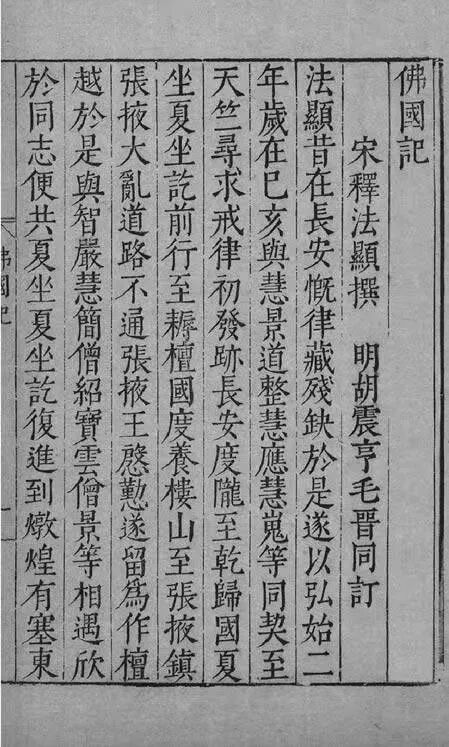 佛國記
宋釋法顯撰 明胡震亨毛晋同訂
法顯昔在長安慨律藏殘缺於是遂以弘始二
年歲在巳亥與慧景道整慧應慧嵬等同契至
天竺尋求戒律初發跡長安度隴至乾歸國夏
坐夏坐訖前行至耨檀國度養樓山至張掖鎮
張掖大亂道路不通張掖王慇懃遂留爲作檀
越於是與智嚴慧簡僧紹寶雲僧景等相遇欣
於同志便共夏坐夏坐訖復進到燉煌有塞東
佛國記
一